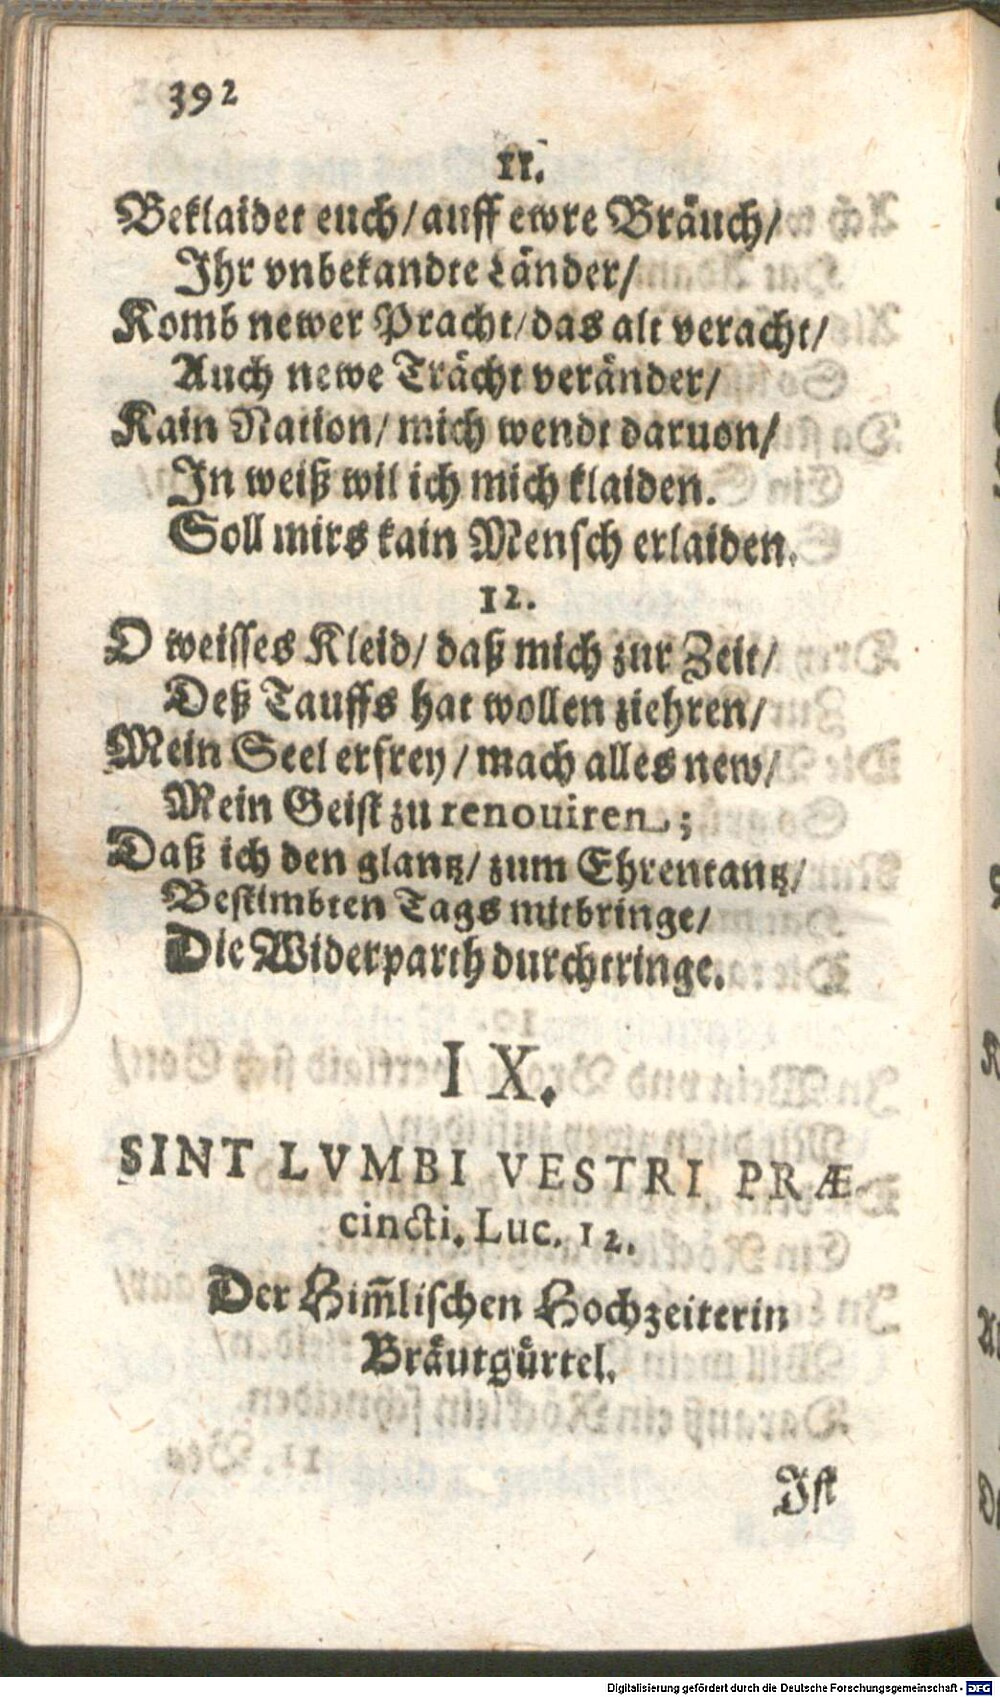 392
11.
Beklaidet euch/ auff ewre Bräuch/
Ihr vnbekandte Länder/
Komb newer Pracht/ das alt veracht/
Auch newe Trächt veränder/
Kain Nation/ mich wendt daruon/
In weiß wil ich mich klaiden.
Soll mirs kain Mensch erlaiden.
12.
O weisses Kleid/ daß mich zur Zeit/
Deß Tauffs hat wollen ziehren/
Mein Seel erfrey/ mach alles new/
Mein Geist zu renouiren;
Daß ich den glantz/ zum Ehrentantz/
Bestimbten Tags mitbringe/
Die Widerparth durchtringe.
IX.
SINT LVMBI VESTRI PRÆ-
cincti. Luc. 12.
Der Him̄lischen Hochzeiterin
Bräutgürtel.
Ist
Digitalisierung gefördert durch die Deutsche Forschungsgemeinschaft - DFG